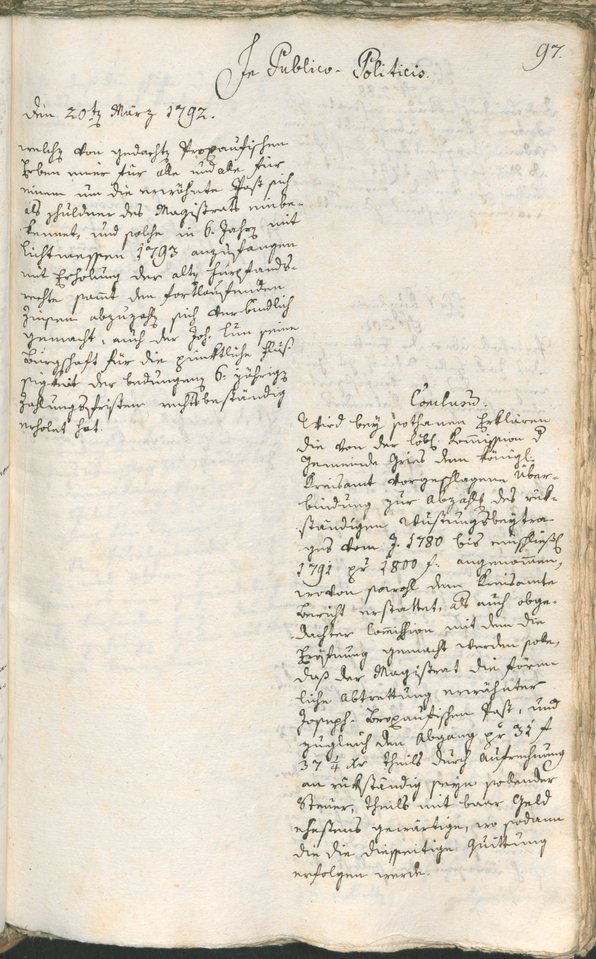 97.
In Publico-Politicis.
Den 20t März 1792.
welche von gedacht Proxaufischen
Erben einer für alle und alle für
einen um die erwöhnte Post sich
als Schuldner des Magistrats einbe-
kennet, und solche in 6. Jahr mit
Lichtmessen 1793 anzufangen
mit Erholung der alt Fürpfands-
rechte sammt den fortlaufenden
Zinsen abzuzahl sich verbindlich
gemacht, auch der Joh. Lun seine
Bürgschaft für die pünktliche Flüß
sigkeit der bedungenen 6. jährig
Zahlungsfristen rechtsbeständig
erholet hat.
Conclusum.
Wird bey sothanen Erklären
die von der löbl. Kommission d
Gemeinde Gries dem königl.
Kreisamt vorgeschlagene Über-
bindung zur Abzahl des rük-
ständigen Wustungsbeytra-
ges vom J. 1780 bis einschließl
1791 pr 1800 f. angenommen,
wovon sowohl dem Kreisamte
Bericht erstattet, als auch obge-
dachter Commission mit dem die
Eröfnung gemacht werden solle,
daß der Magistrat die förm
liche Abtrettung erwöhnter
Joseph-Proxaufischen Post, und
zugleich den Abgang pr 31 f
37 ¼ xr theils durch Aufrechnung
an rükständig seyn sollender
Steuer, theils mit baar Geld
ehestens gewärtige, wo sodann
die die diesseitige Quittung
erfolgen werde.